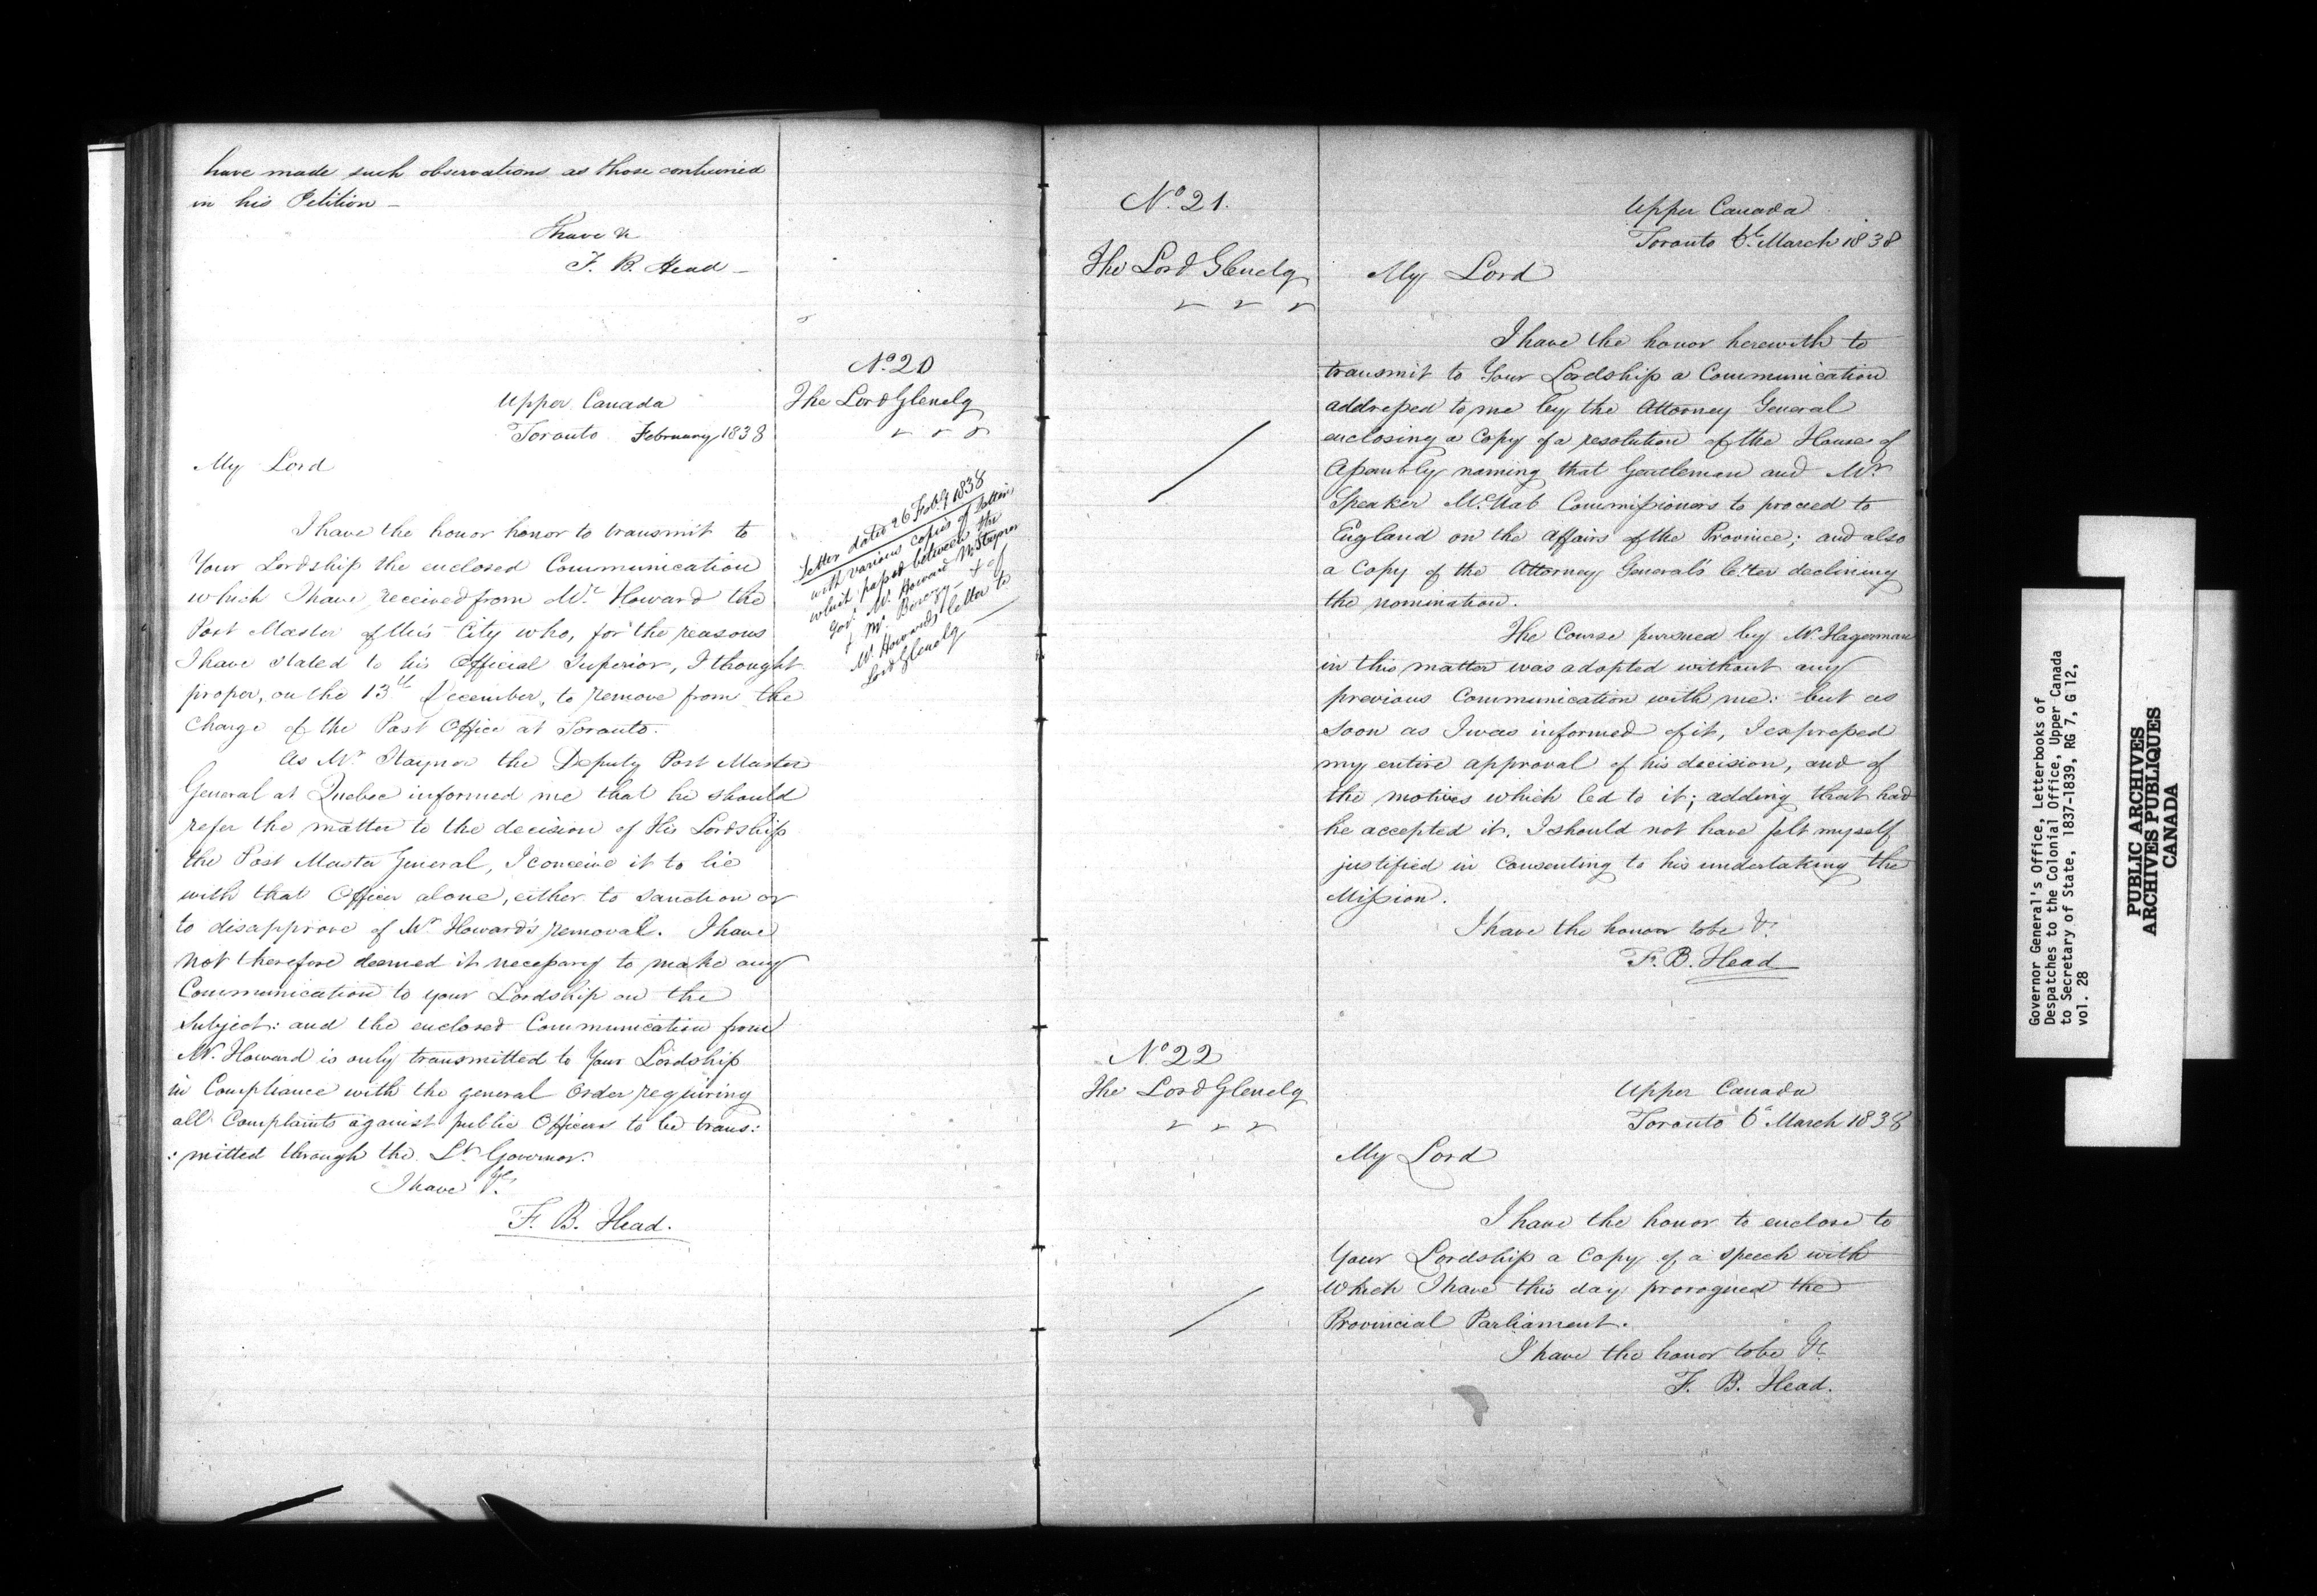 have made such observations as those contained
in his Petition –
I have &c
F. B. Head –
No. 20
The Lord Glenelg
Upper Canada
Toronto February 1838
My Lord
I have the honor honor to transmit to
Your Lordship the enclosed Communication
which I have received from Mr. Howard the
Post Master of this City who, for the reasons
I have stated to his Official Superior, I thought
proper, on the 13th December, to remove from the
charge of the Post Office at Toronto.
As Mr. Stayner the Deputy Post Master
General at Quebec informed me that he should
refer the matter to the decision of His Lordship
the Post Master General, I conceive it to lie
with that Officer alone, either to sanction or
to disapprove of Mr. Howard's removal. I have
not therefore deemed it necessary to make any
Communication to your Lordship on the
Subject: and the enclosed Communication from
Mr. Howard is only transmitted to Your Lordship
in Compliance with the general Order requiring
all Complaints against public Officers to be trans:
:mitted through the Lt. Governor.
I have &c.
F. B. Head.
Letter dated 26 Feby 1838
with various copies of letters
which passed between the
Govt. Mr. Howard Mr. Stayner
& Mr. Berczy – & of
Mr. Howards letter to
Lord Glenelg
No. 21.
The Lord Glenelg
Upper Canada
Toronto 6th March 1838
My Lord
I have the honor herewith to
transmit to Your Lordship a Communication
addressed to me by the Attorney General
enclosing a Copy of a resolution of the House of
Assembly naming that Gentleman and Mr.
Speaker McNab Commissioners to proceed to
England on the affairs of the Province; and also
a Copy of the Attorney General's letter declining
the nomination.
The Course pursued by Mr. Hagerman
in this matter was adopted without any
previous Communication with me: but as
soon as I was informed of it, I expressed
my entire approval of his decision, and of
the motives which led to it; adding that had
he accepted it, I should not have felt myself
justified in consenting to his undertaking the
Mission.
I have the honor to be &c.
F. B. Head
No. 22
The Lord Glenelg
Upper Canada
Toronto 6th March 1838
My Lord
I have the honor to enclose to
Your Lordship a Copy of a speech with
which I have this day prorogued the
Provincial Parliament.
I have the honor to be &c
F. B. Head.
Governor General's Office, Letterbooks of
Despatches to the Colonial Office, Upper Canada
to Secretary of State, 1837-1839, RG 7, G 12,
vol. 28
PUBLIC ARCHIVES
ARCHIVES PUBLIQUES
CANADA